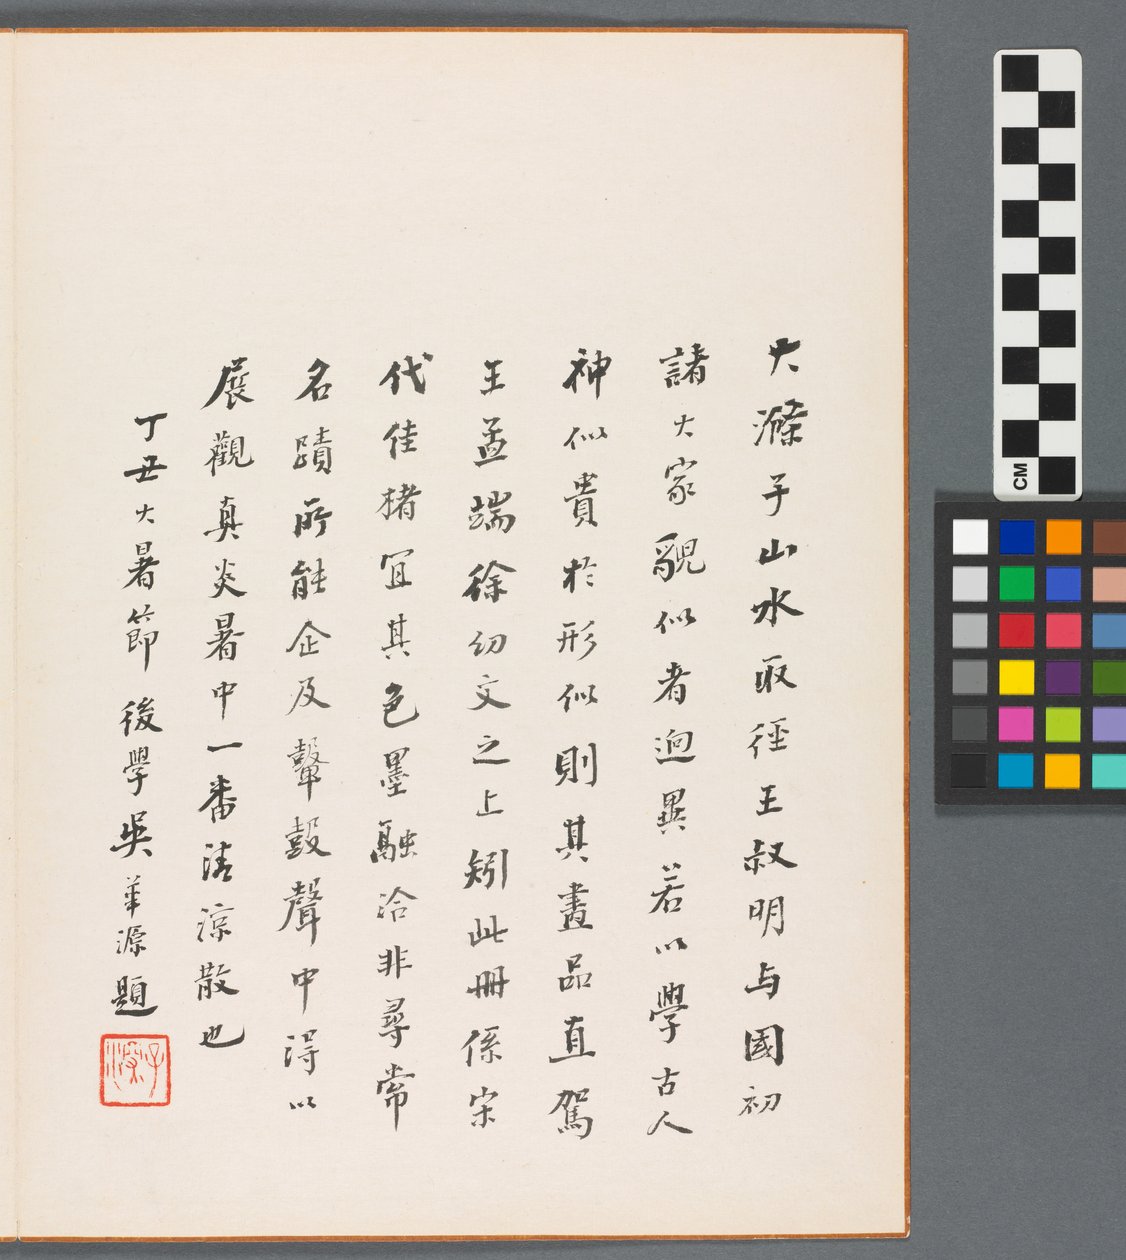 大滌子山水取徑王叔明与國初
諸大家貌似者迥異若以學古人
神似貴於形似則其畫品直駕
王孟端徐幼文之上矧此冊係宋
代佳楮宜其色墨融洽非尋常
名蹟所能企及鼙鼓聲中得以
展觀真炎暑中一番清涼散也
丁丑大暑節後學吳華源題
子深
CM